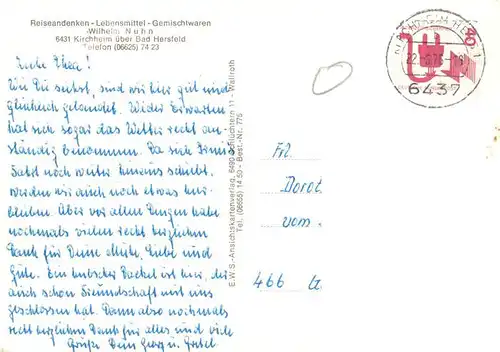 Reiseandenken - Lebensmittel - Gemischtwaren
Wilhelm Nuhn
6431 Kirchheim über Bad Hersfeld
Telefon (06625) 74 23
Liebe Thea!
Wie Du siehst, sind wir hier gut und
glücklich gelandet. Wider Erwarten
hat sich sogar das Wetter recht an-
ständig benommen. Da sich
noch weiter hinaus schiebt,
werden wir auch noch etwas hier
bleiben. Aber vor allen Dingen habe
nochmals vielen recht herzlichen
Dank für Deine Mühe, Liebe und
Güte. Ein hübscher Dackel ist hier, der
auch schon Freundschaft mit uns
geschlossen hat. Dann also nochmals
recht herzlichen Dank für alles und viele
Grüße Dein Georg u. Gretel
E.W.S.-Ansichtskartenverlag, 6490 Schlüchtern 11 - Wallroth
Tel. (06655) 14 50 - Best.-Nr. 775
40
6437
Frl.
Dorot
vom
466 G